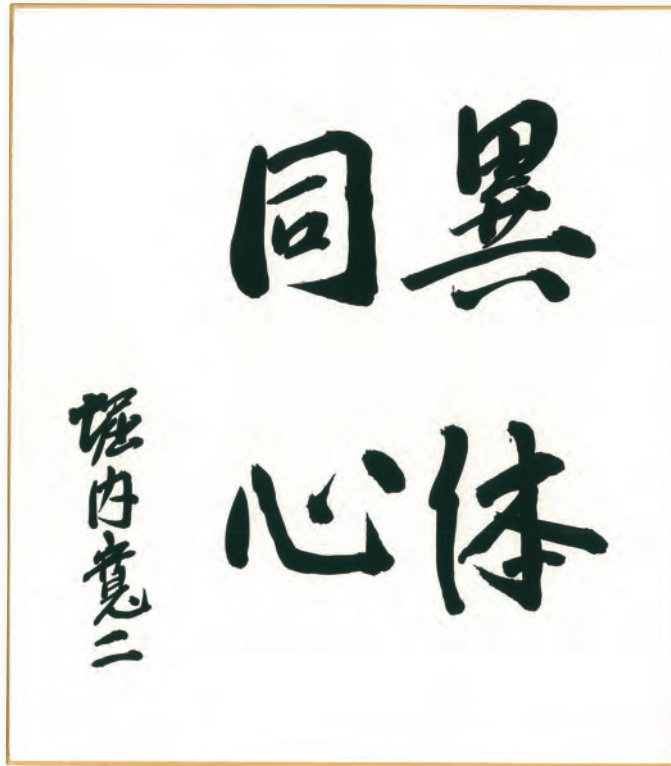 異体
同心
堀内寛二